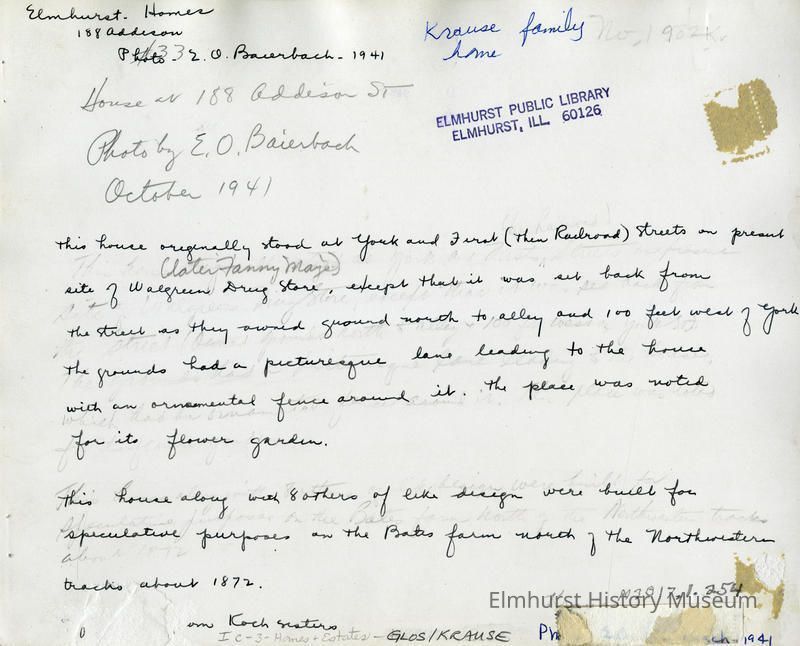 Elmhurst. Homes
188 Addison
Photo E. O. Baierbach - 1941
Krause family
home
No, 1902K.
House at 188 Addison St
Photo by E. O. Baierbach
October 1941
ELMHURST PUBLIC LIBRARY
ELMHURST, ILL. 60126
This house originally stood at York and First (Then Railroad) Streets on present
(later Fanny Maye)
site of Walgreen Drug Store, except that it was set back from
the street as they owned ground north to alley and 100 feet west of York
The grounds had a picturesque lane leading to the house
with an ornamental fence around it. The place was noted
for its flower garden.
This house along with 8 others of like design were built for
speculative purposes on the Bates farm north of the Northwestern
tracks about 1872.
Koch sisters
I C-3-Homes + Estates - GLOS/KRAUSE
M2017.1.254
Elmhurst History Museum
1941